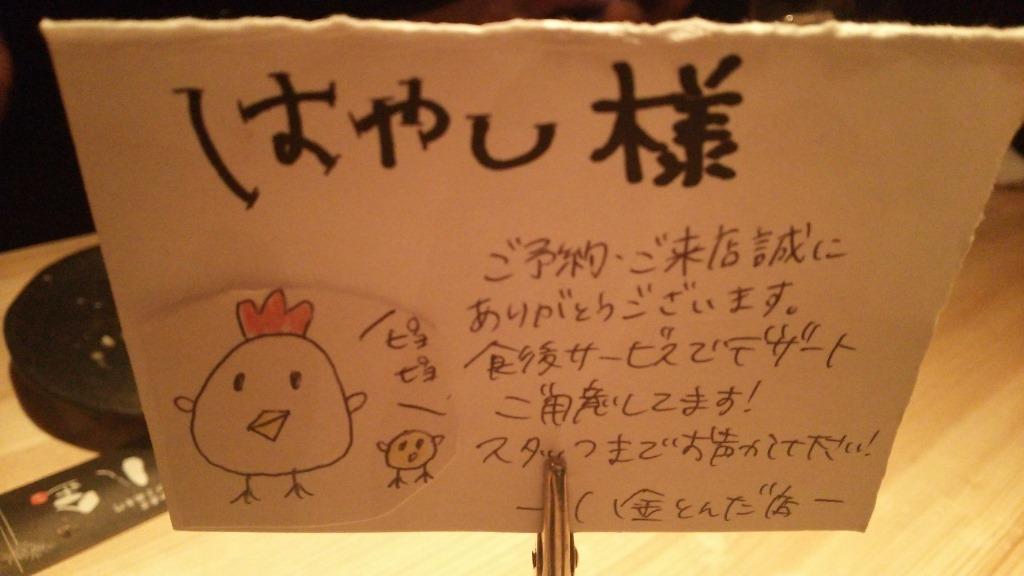 はやし様
ご予約・ご来店誠に
ありがとうございます。
食後サービスでデザート
ご用意してます!
スタッフまでお声かけ下さい!
ピヨ
ピヨ